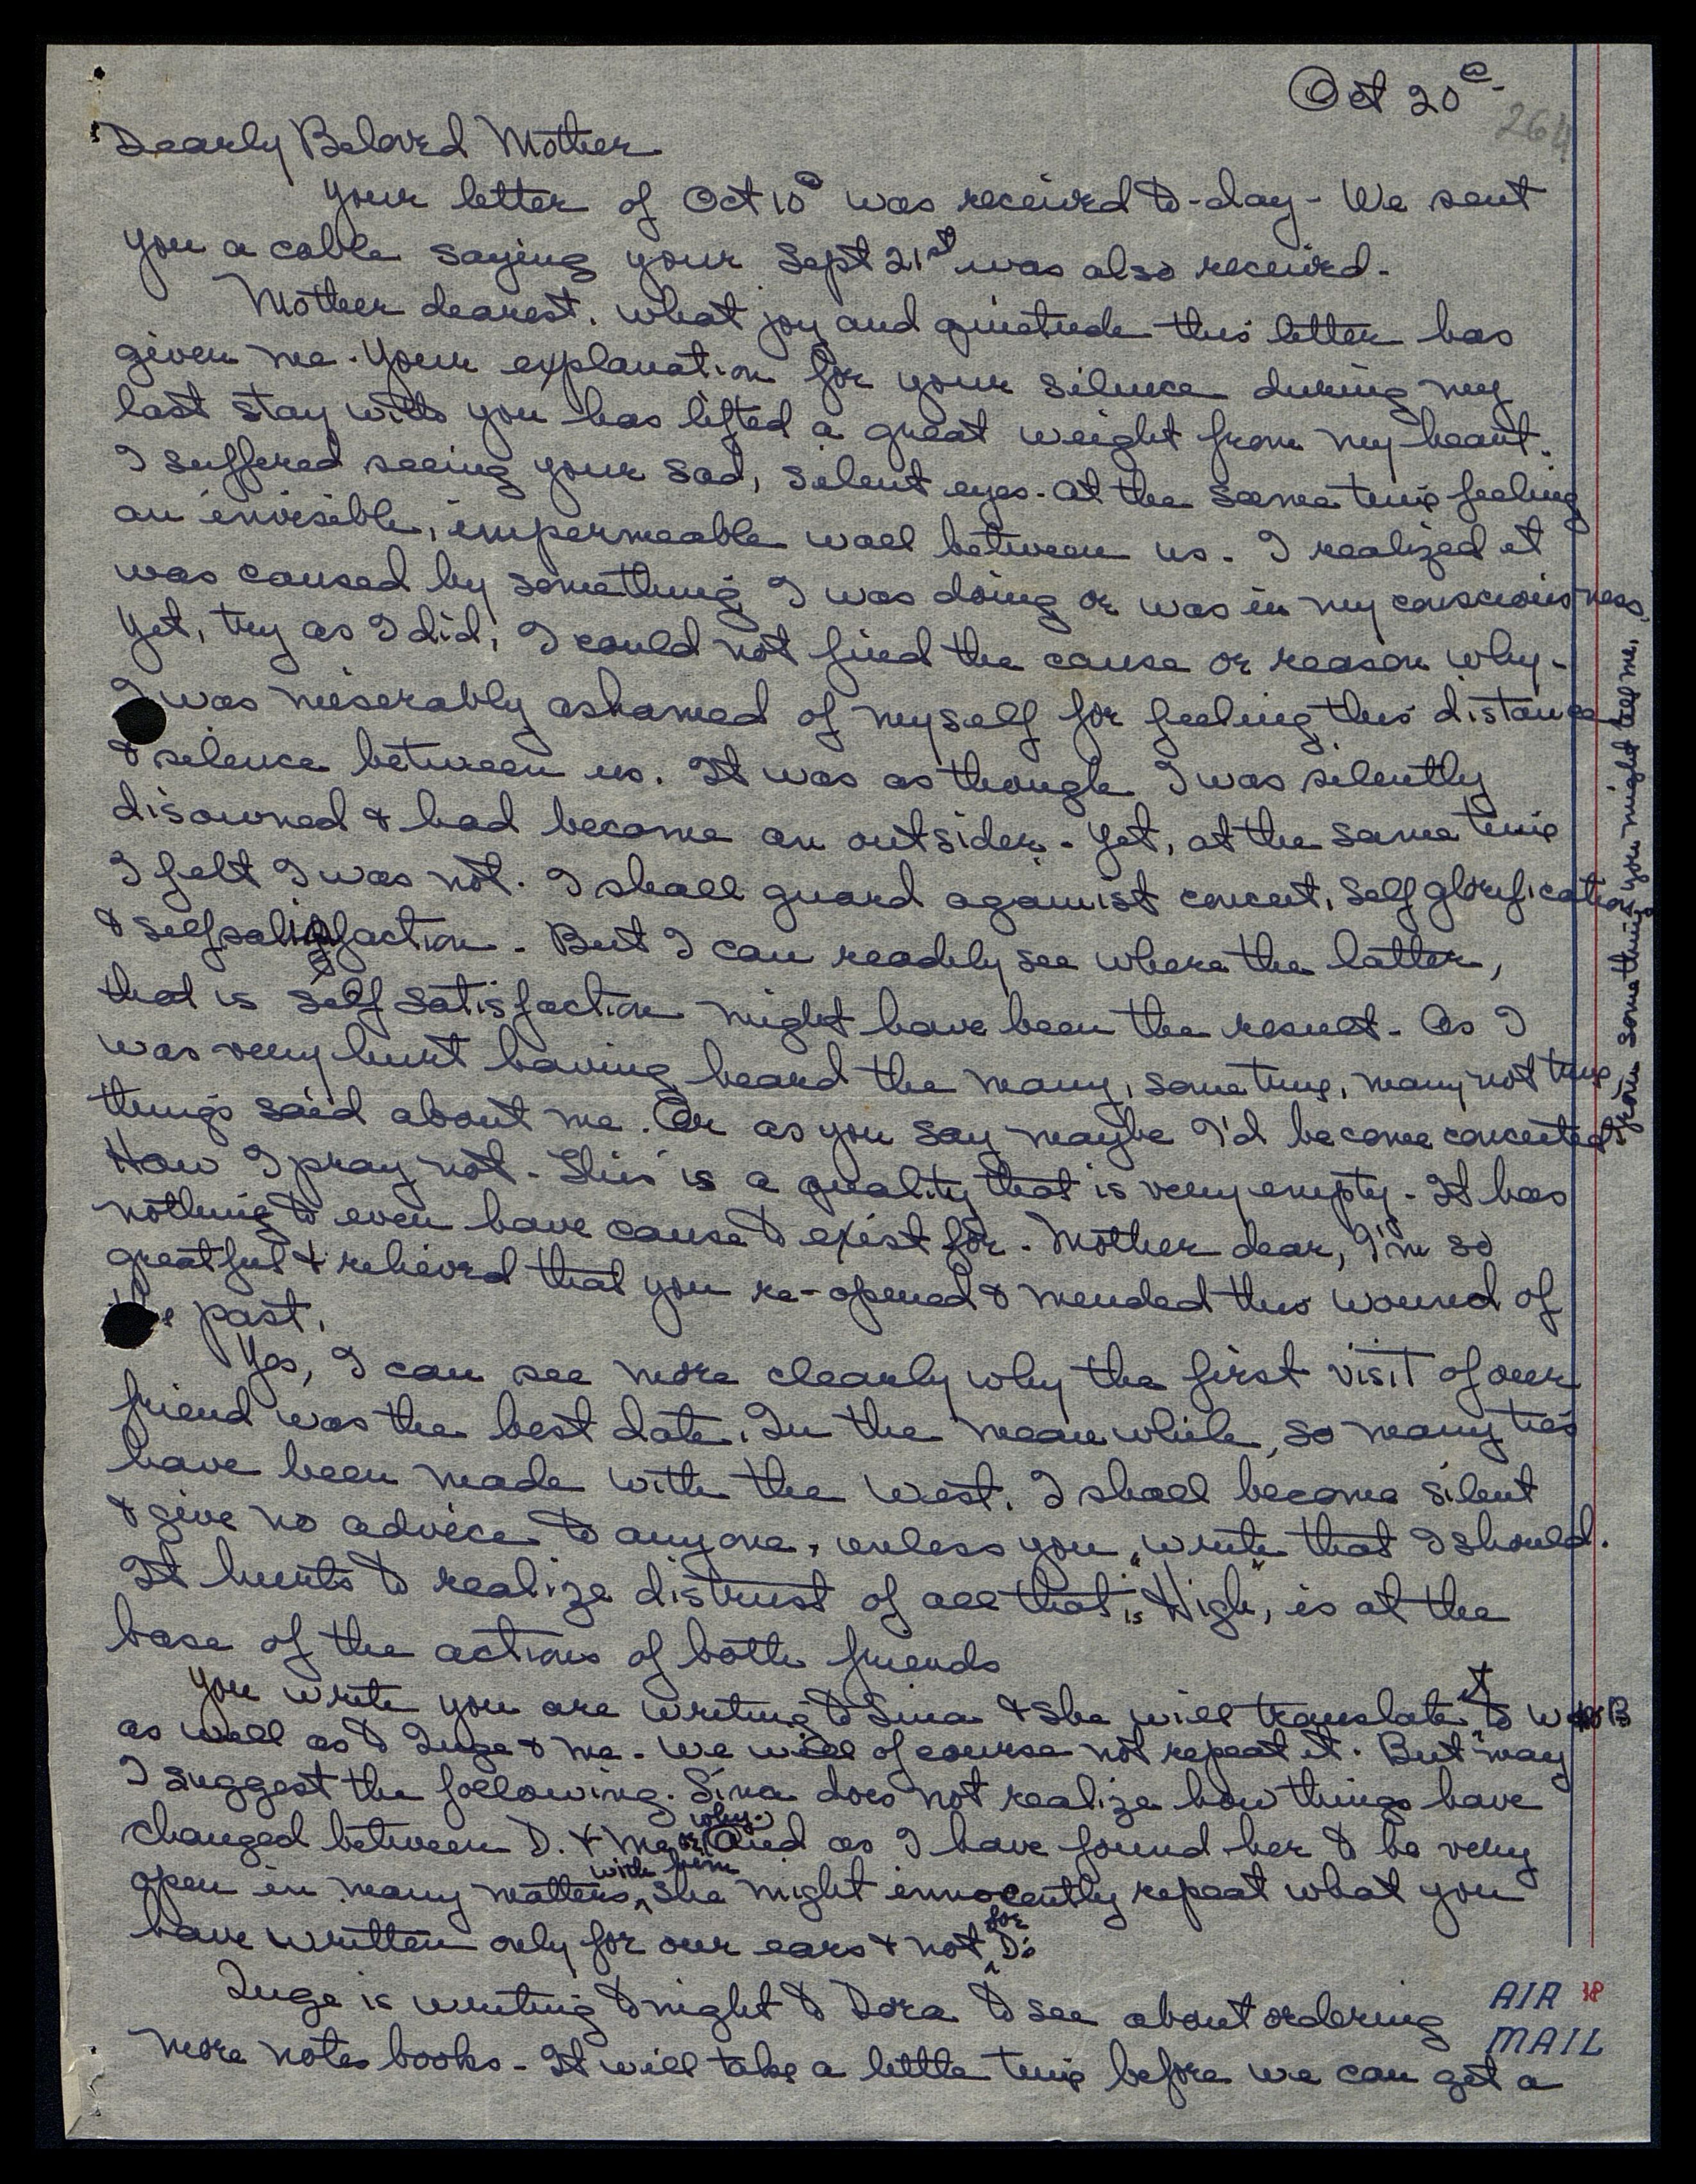 Oct 20th
264
Dearly Beloved Mother
Your letter of Oct 10th was received to-day - We sent
you a cable saying your Sept 21st was also received.
Mother dearest, what joy and quietude this letter has
given me. Your explanation for your silence during my
last stay with you has lifted a great weight from my heart.
I suffered seeing your sad, silent eyes. At the same time feeling
an invisible, impermeable wall between us. I realized it
was caused by something I was doing or was in my consciousness,
Yet, try as I did, I could not find the cause or reason why.
I was miserably ashamed of myself for feeling this distance
& silence between us. It was as though I was silently
disowned & had become an outsider. Yet, at the same time
I felt I was not. I shall guard against conceit, self glorification
& self satisfaction. But I can readily see where the latter,
that is self satisfaction might have been the result. As I
was very hurt having heard the many, some true, many not true
things said about me. Or as you say maybe I'd become conceited
from something you might tell me.
How I pray not. This is a quality that is very empty. It has
nothing to even have cause to exist for. Mother dear, I'm so
greatful & relieved that you re-opened & mended this wound of
the past.
Yes, I can see more clearly why the first visit of our
friend was the best date. In the meanwhile, so many ties
have been made with the West. I shall become silent
& give no advice to anyone, unless you "write" that I should.
It hurts to realize distrust of all that is High, is at the
base of the actions of both friends
You write you are writing to Sina & she will translate it to
as well as to Inge & me. We will of course not repeat it. But may
I suggest the following. Sina does not realize how things have
changed between D. & me or why. And as I have found her to be very
open in many matters with him, she might innocently repeat what you
have written only for our ears & not for D's
Inge is writing to night to Dora to see about ordering
more notes books - It will take a little time before we can get a
AIR MAIL